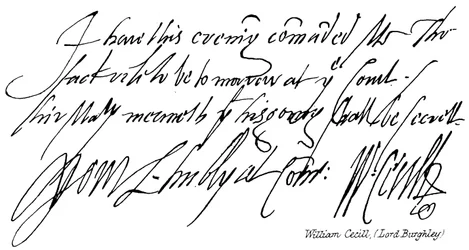 I have this evening com̃anded Mr Tho:
to be to morrow at yͤ Court.
his Maty meaneth yͭ his goĩg shall be secrett.
yor L. humbly at Com̃:
W. Cecill
William Cecill, (Lord Burghley)